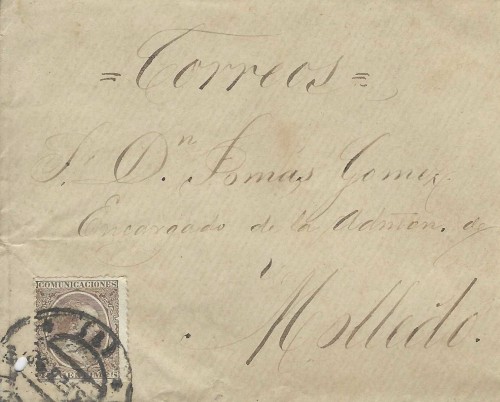 = Correos =
S. Dn. Tomás Gomez.
Encargado de la Admon. de
Molledo.
COMUNICACIONES